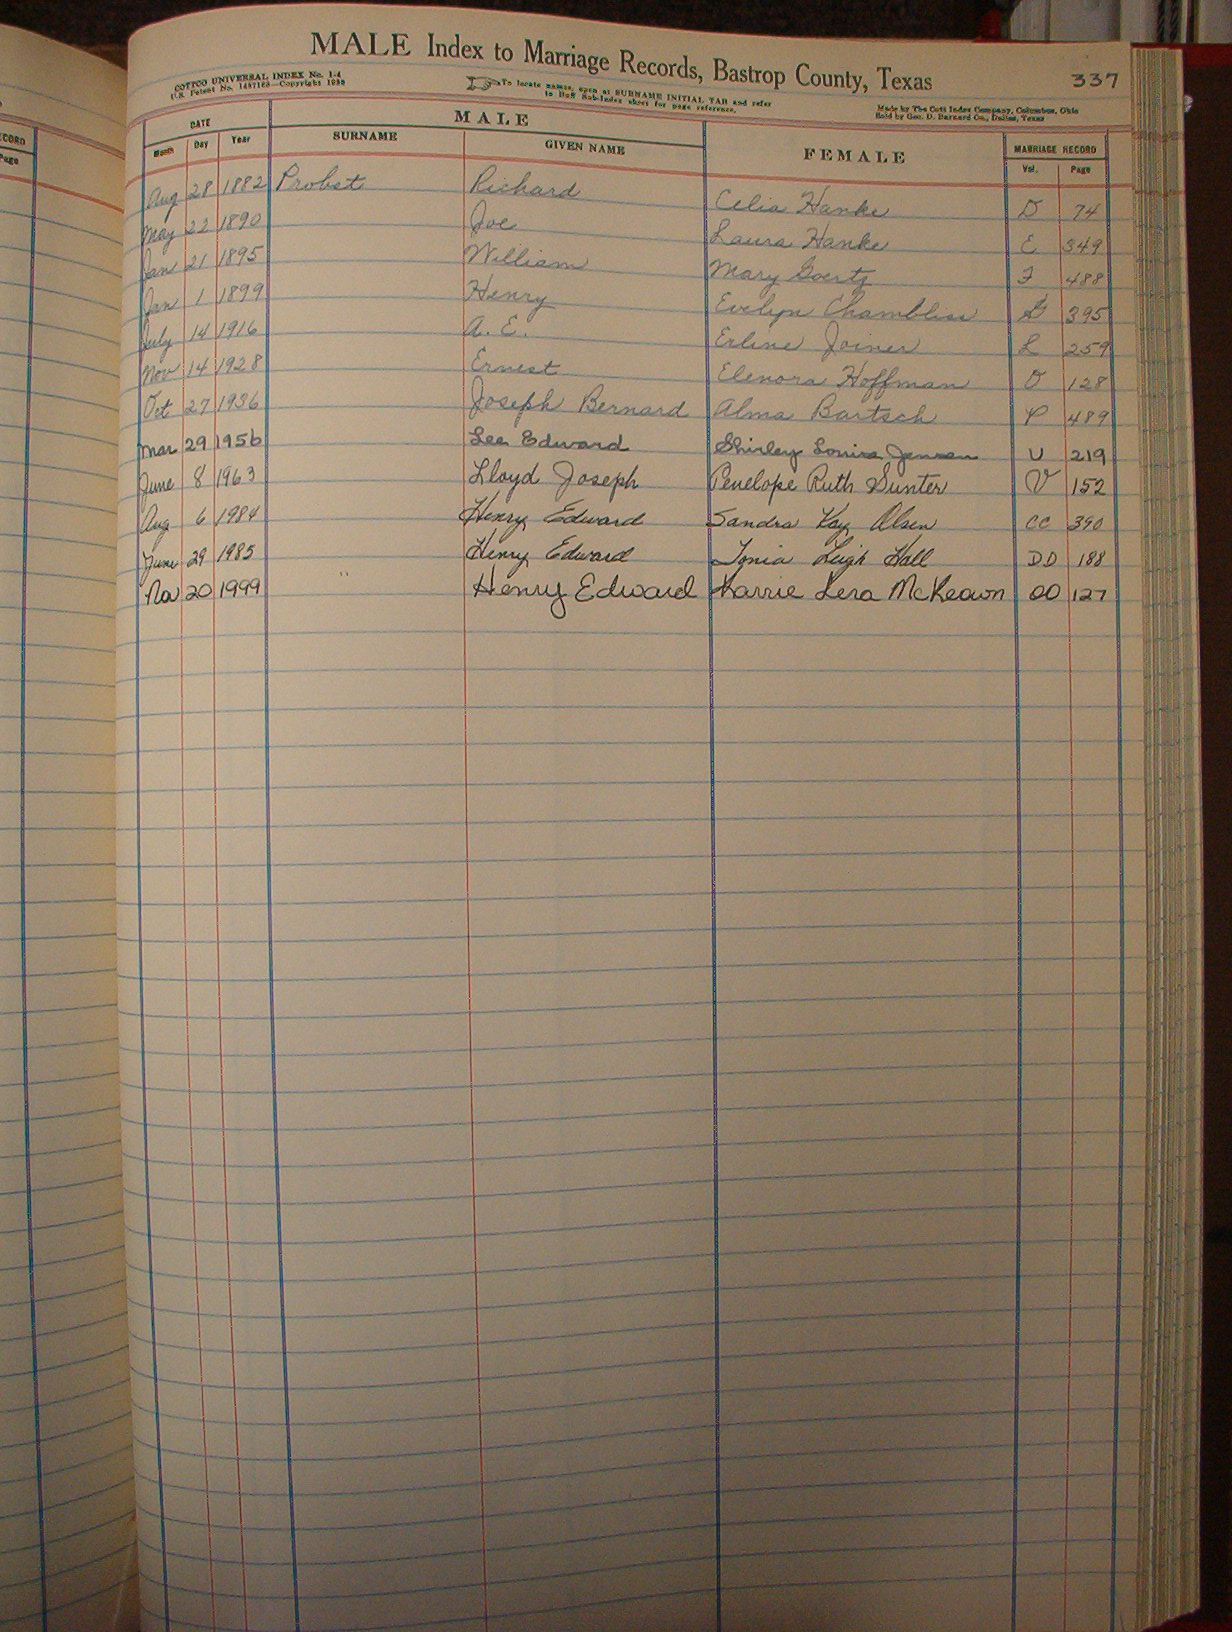 MALE Index to Marriage Records, Bastrop County, Texas 337
COTTCO UNIVERSAL INDEX No. 1-4
U.S. Patent No. 1487183—Copyright 1935
To locate names, open at SURNAME INITIAL TAB and refer
to Buff Sub-Index sheet for page reference.
Made by The Cott Index Company, Columbus, Ohio
Sold by Geo. D. Barnard Co., Dallas, Texas
DATE MALE FEMALE MARRIAGE RECORD
Month Day Year SURNAME GIVEN NAME Vol. Page
Aug 28 1882 Probst Richard Celia Hanke D 74
May 22 1890 Joe Laura Hanke E 349
Jan 21 1895 William Mary Goertz F 488
Jan 1 1899 Henry Evelyn Chambliss 395
July 14 1916 A. E. Erline Joiner L 259
Nov 14 1928 Ernest Elenora Hoffman O 128
Oct 27 1936 Joseph Bernard Alma Bartsch P 489
Mar 29 1956 Lee Edward Shirley Louise Jensen U 219
June 8 1963 Lloyd Joseph Penelope Ruth Gunter V 152
Aug 6 1984 Henry Edward Sandra Kay Olsen CC 390
June 29 1985 Henry Edward Tonia Leigh Hall DD 188
Nov 20 1999 " Henry Edward Karrie Lera McKeown OO 127
RECORD
Page